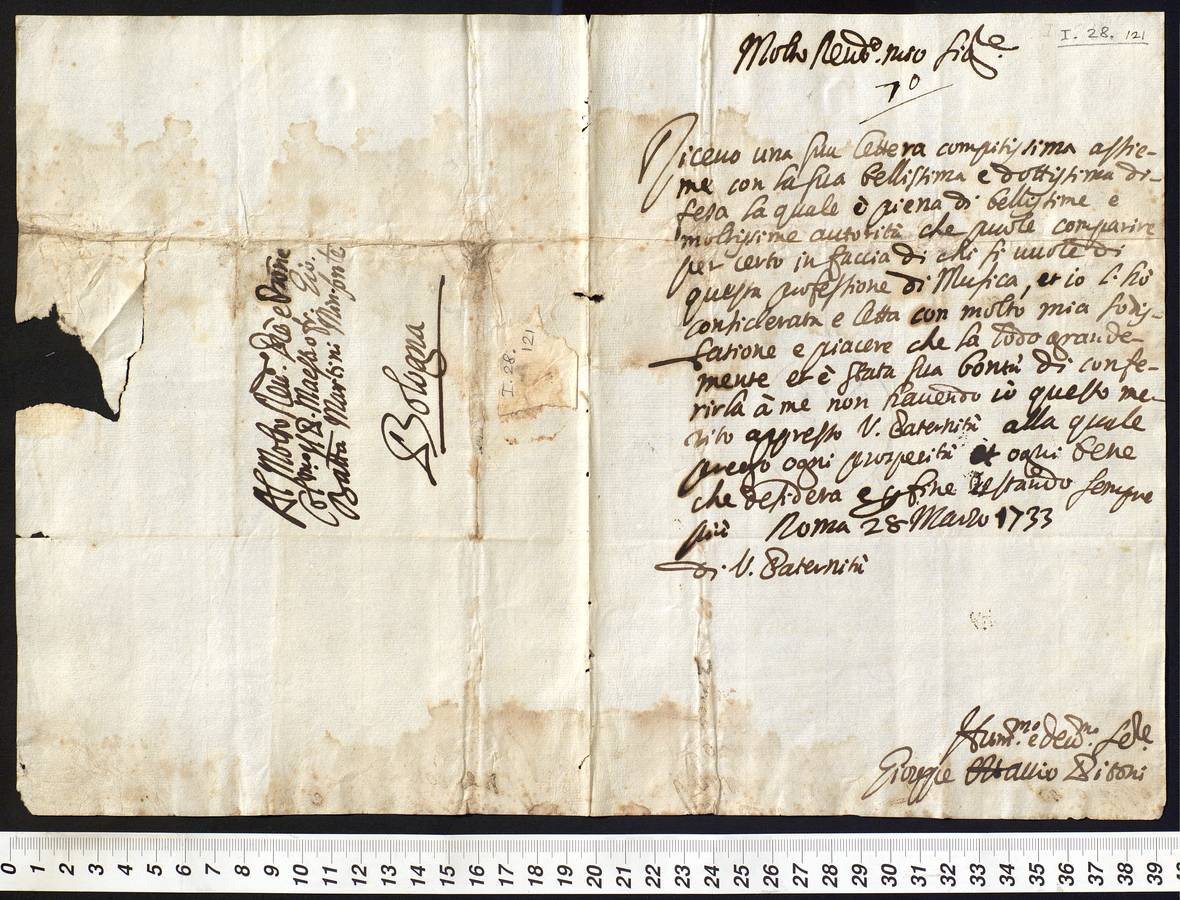 I. 28. 121
Molto Reudo. mio Sigre.
Riceuo una sua lettera compitissima assie-
me con la sua bellissima e dottissima di-
fesa la quale è piena di bellissime e
moltissime autorità che puole comparire
per certo in faccia di chi si uuole di
questa professione di Musica, et io l'hò
considerata e letta con molto mia sodis-
fatione e piacere che la lodo grande-
mente et è stata sua bontà di confe-
rirla à me non hauendo io questo me-
rito appresso V. Paternità alla quale
prego ogni prosperità et ogni bene
che desidera e fine restando sempre
più Roma 28 Marzo 1733
di V. Paternità
Hummo. e deumo. Sere.
Giuseppe Ottauio Pitoni
Al Molto Reudo. Padre
Colmo. Il P. Maestro Gio.
Batta Martini Min. Conte
Bologna
I. 28.
121
0 1 2 3 4 5 6 7 8 9 10 11 12 13 14 15 16 17 18 19 20 21 22 23 24 25 26 27 28 29 30 31 32 33 34 35 36 37 38 39